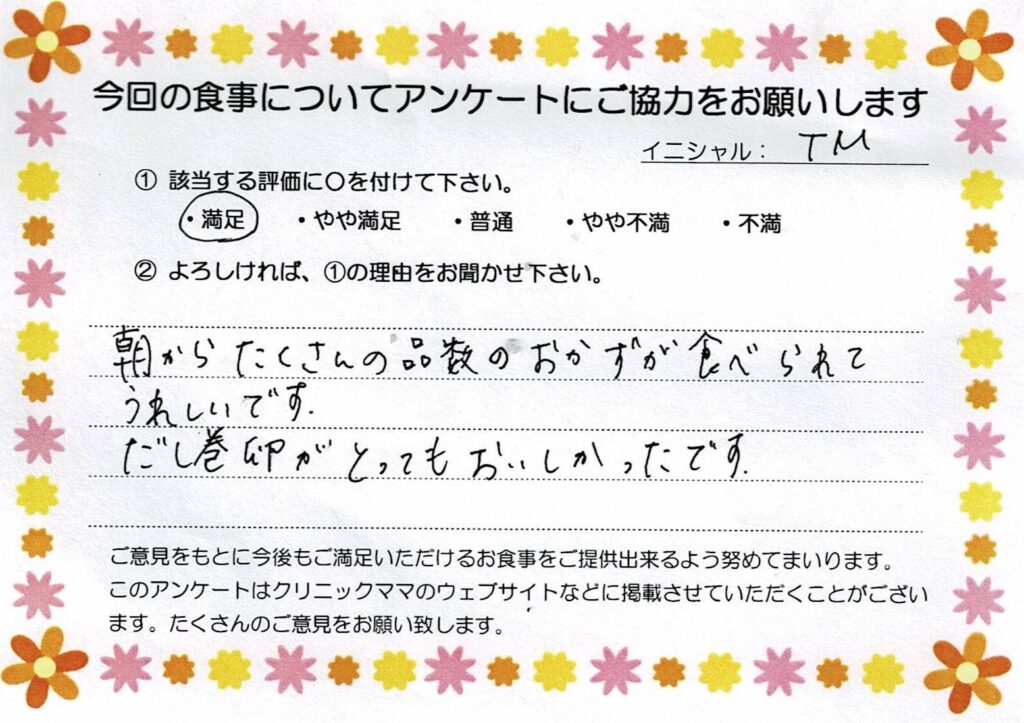 今回の食事についてアンケートにご協力をお願いします
イニシャル： TM
① 該当する評価に〇を付けて下さい。
・満足 ・やや満足 ・普通 ・やや不満 ・不満
② よろしければ、①の理由をお聞かせ下さい。
朝からたくさんの品数のおかずが食べられて
うれしいです.
だし巻卵がとってもおいしかったです.
ご意見をもとに今後もご満足いただけるお食事をご提供出来るよう努めてまいります。
このアンケートはクリニックママのウェブサイトなどに掲載させていただくことがござい
ます。たくさんのご意見をお願い致します。